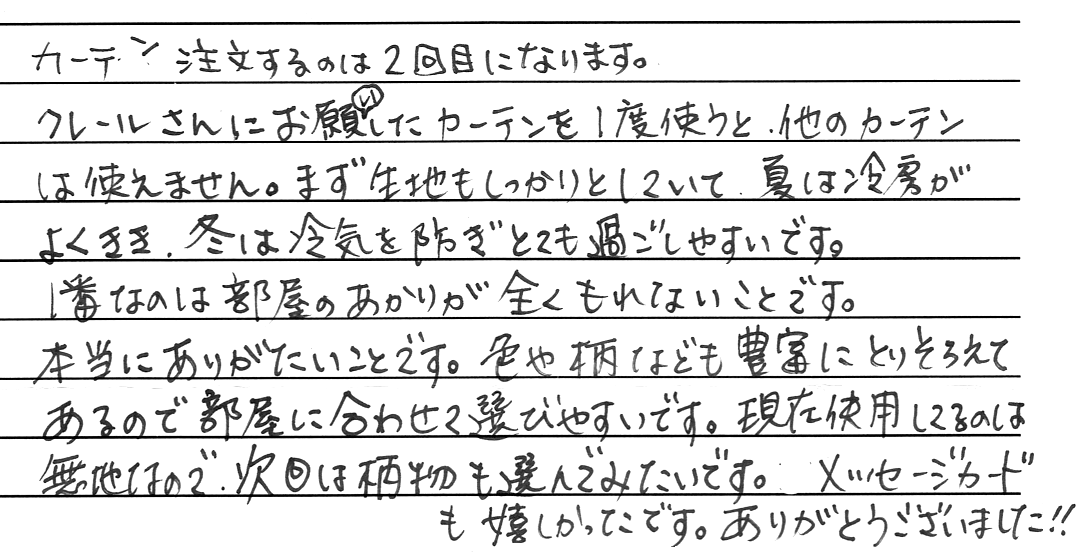 カーテン注文するのは2回目になります。
クレールさんにお願いしたカーテンを1度使うと、他のカーテン
は使えません。まず生地もしっかりとしていて、夏は冷房が
よくきき、冬は冷気を防ぎとても過ごしやすいです。
1番なのは部屋のあかりが全くもれないことです。
本当にありがたいことです。色や柄なども豊富にとりそろえて
あるので部屋に合わせて選びやすいです。現在使用してるのは
無地なので、次回は柄物も選んでみたいです。メッセージカード
も嬉しかったです。ありがとうございました!!